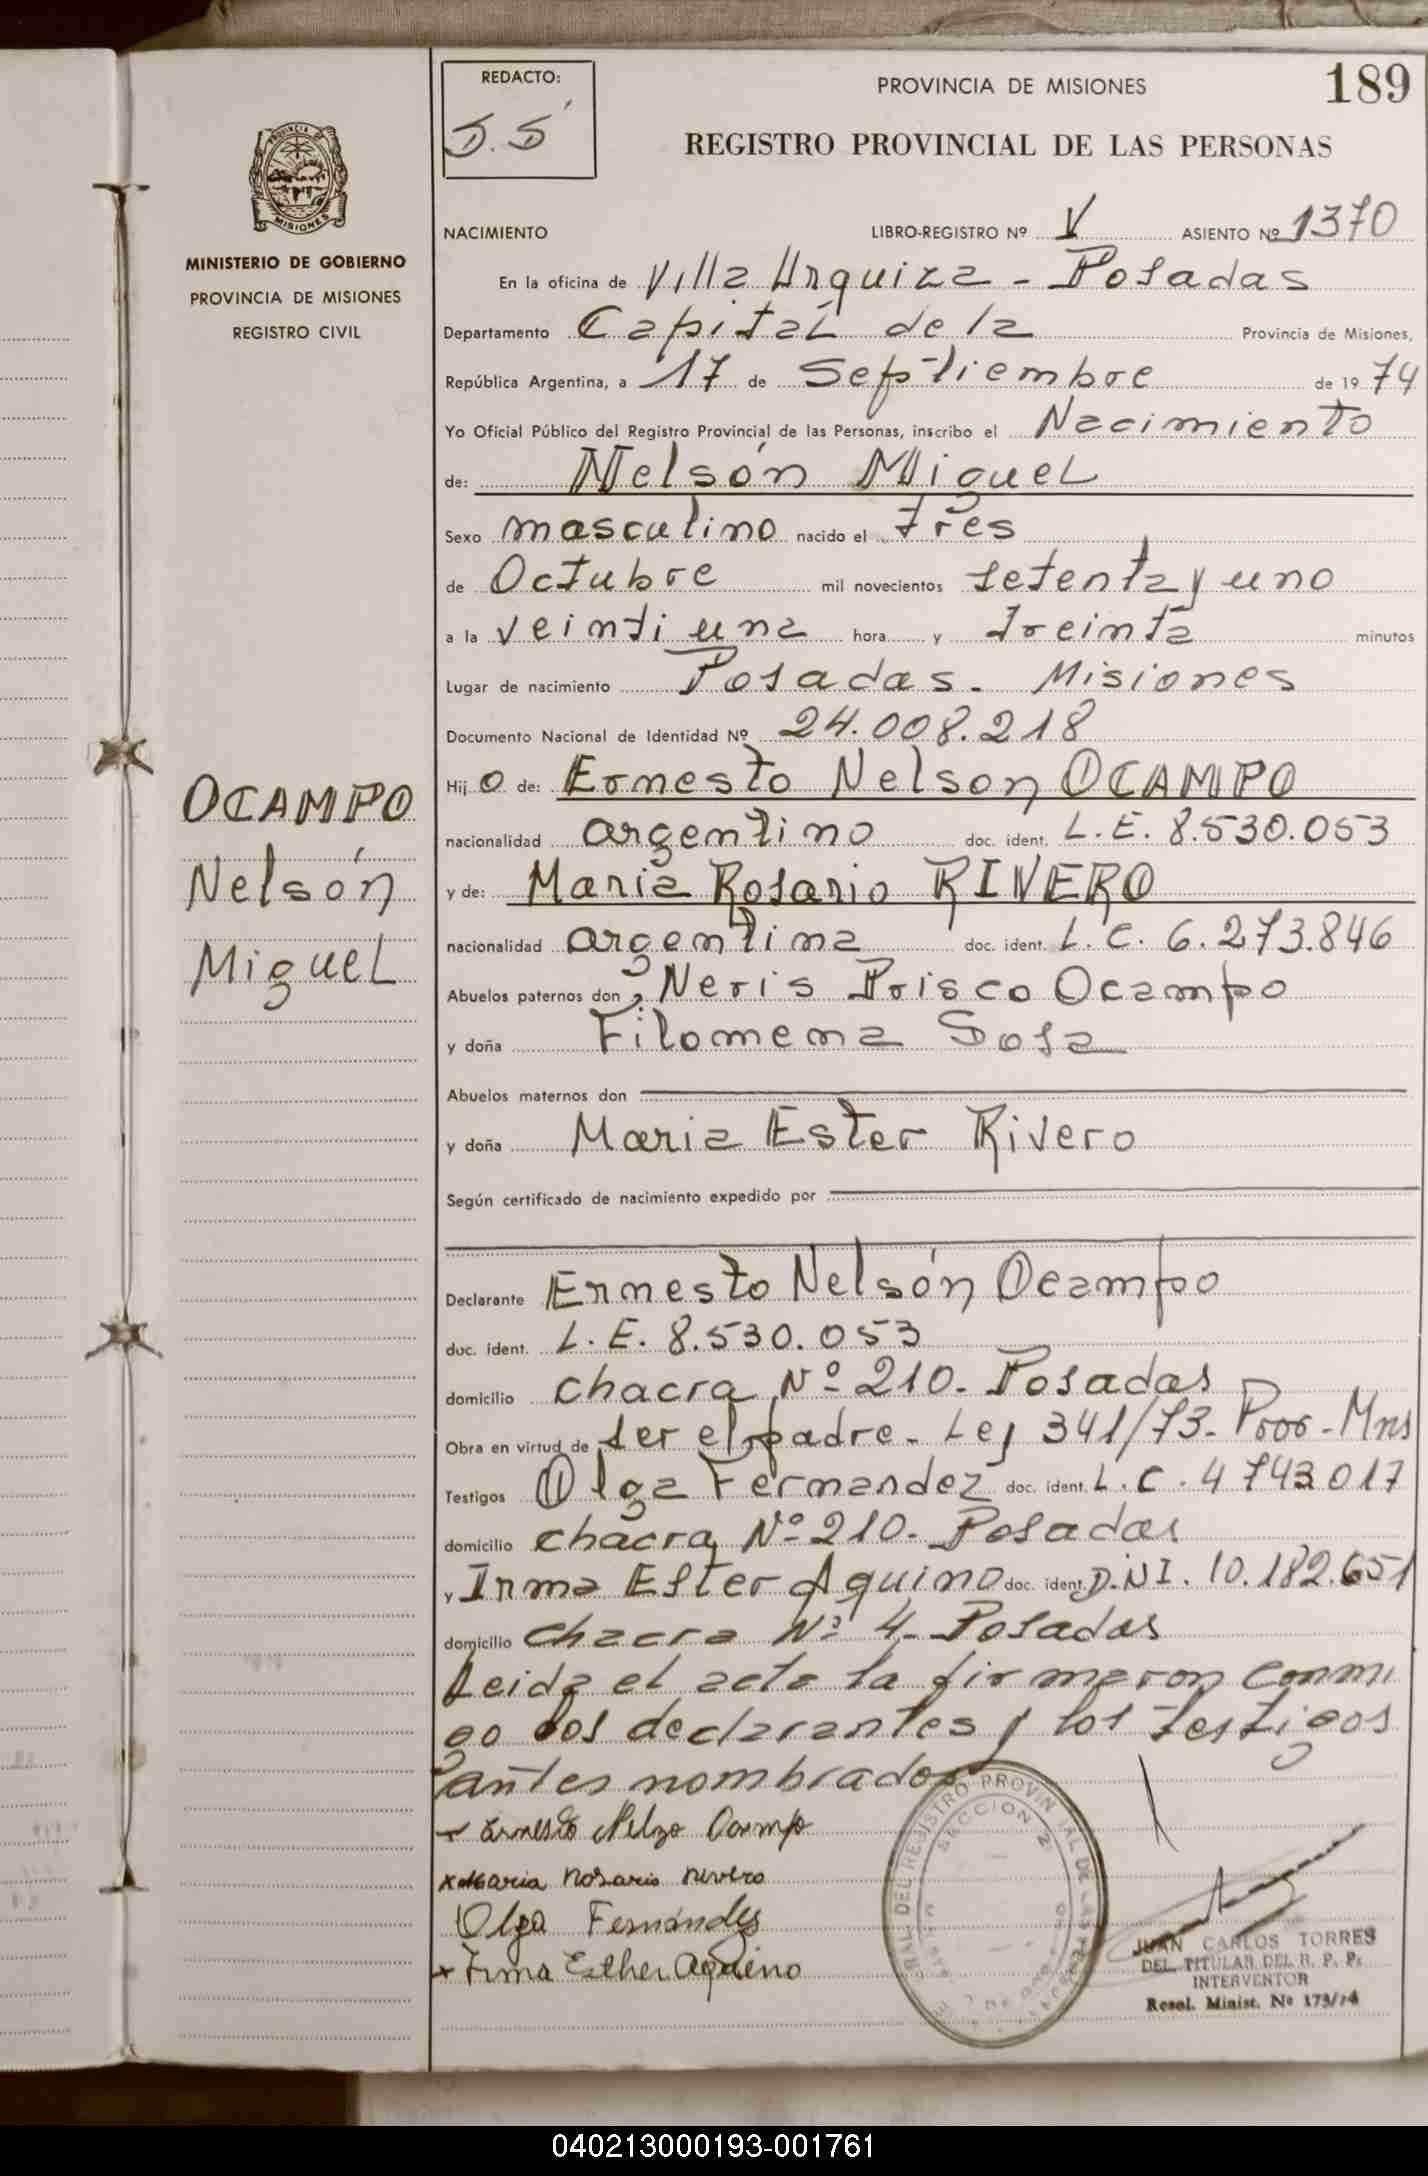 REDACTO:
PROVINCIA DE MISIONES
189
REGISTRO PROVINCIAL DE LAS PERSONAS
PROVINCIA DE MISIONES
MINISTERIO DE GOBIERNO
PROVINCIA DE MISIONES
REGISTRO CIVIL
NACIMIENTO LIBRO-REGISTRO Nº V ASIENTO Nº 1370
En la oficina de Villa Urquiza - Posadas
Departamento Capital de la Provincia de Misiones,
República Argentina, a 17 de Septiembre de 19 74
Yo Oficial Público del Registro Provincial de las Personas, inscribo el Nacimiento
de: Nelsón Miguel
Sexo masculino nacido el tres
de Octubre mil novecientos setenta y uno
a la veintiuna hora y treinta minutos
Lugar de nacimiento Posadas. Misiones
Documento Nacional de Identidad Nº 24.008.218
Hij o de: Ernesto Nelson OCAMPO
OCAMPO
Nelsón
Miguel
nacionalidad argentino doc. ident. L.E. 8.530.053
y de: Maria Rosario RIVERO
nacionalidad argentina doc. ident. L.C. 6.273.846
Abuelos paternos don Neris Prisco Ocampo
y doña Filomena Sosa
Abuelos maternos don
y doña Maria Ester Rivero
Según certificado de nacimiento expedido por
Declarante Ernesto Nelsón Ocampo
doc. ident. L.E. 8.530.053
domicilio chacra Nº 210. Posadas
Obra en virtud de ser el padre. Ley 341/73- Pror - Mns
Testigos Olga Fernandez doc. ident. L.C. 4743017
domicilio chacra Nº 210. Posadas
y Irma Ester Aquino doc. ident. D.N.I. 10.182.651
domicilio chacra Nº 4. Posadas
Leida el acta la firmaron conmi
go los declarantes y los testigos
antes nombrados
Ernesto Nelzo Ocampo
x Maria Rosario Rivero
Olga Fernández
x Irma Esther Aquino
JUAN CARLOS TORRES
DEL TITULAR DEL R. P. P.
INTERVENTOR
Resol. Minist. Nº 173/74
040213000193-001761